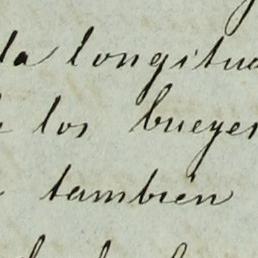 la longitud
los bueyes
tambien